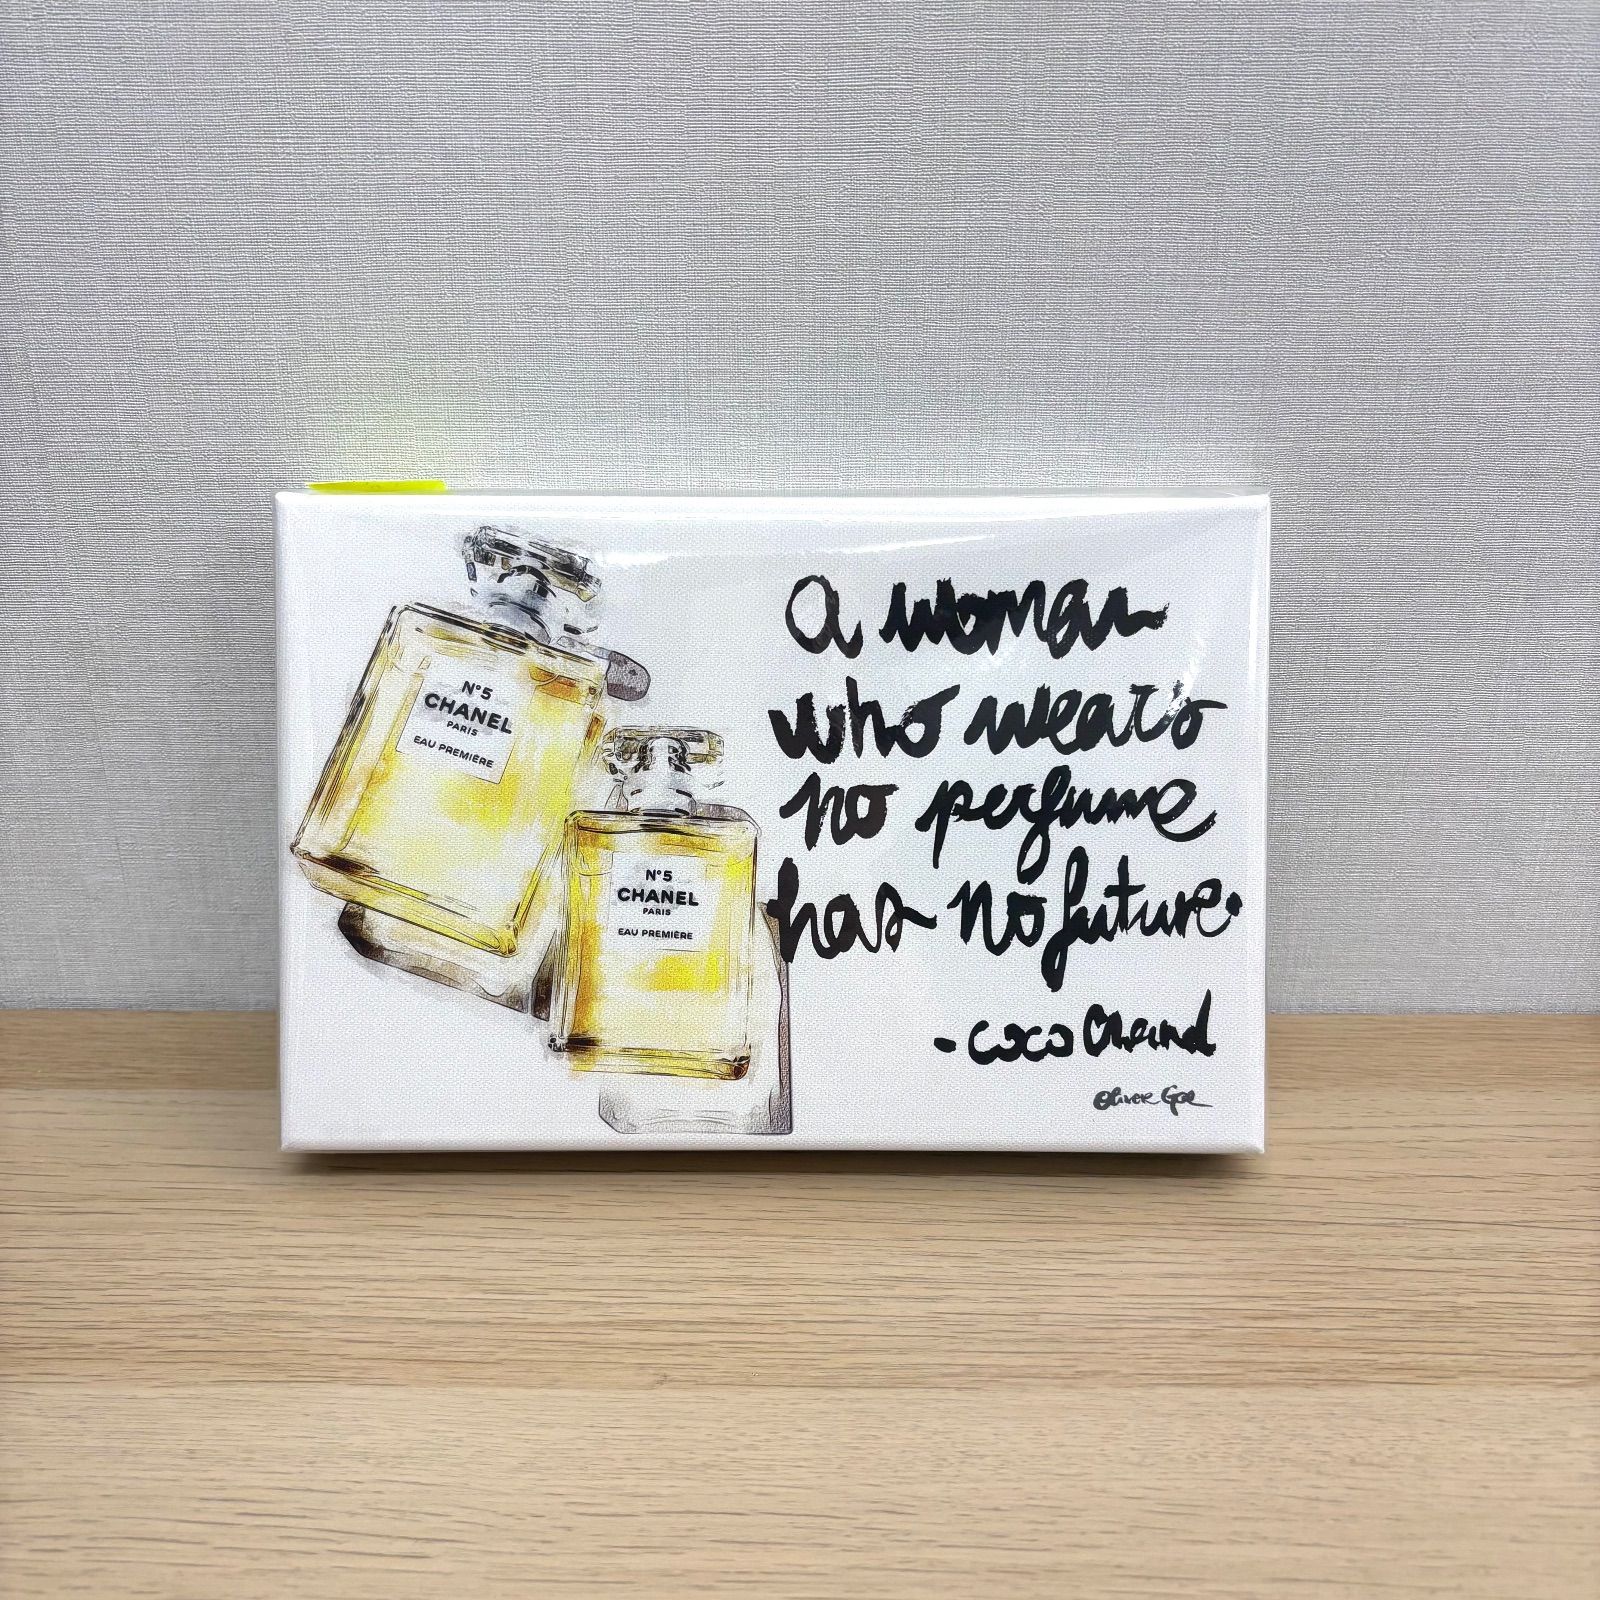 N°5
CHANEL
PARIS
EAU PREMIÈRE
N°5
CHANEL
PARIS
EAU PREMIÈRE
a woman
who wears
no perfume
has no future.
- coco Chanel
Oliver Gal